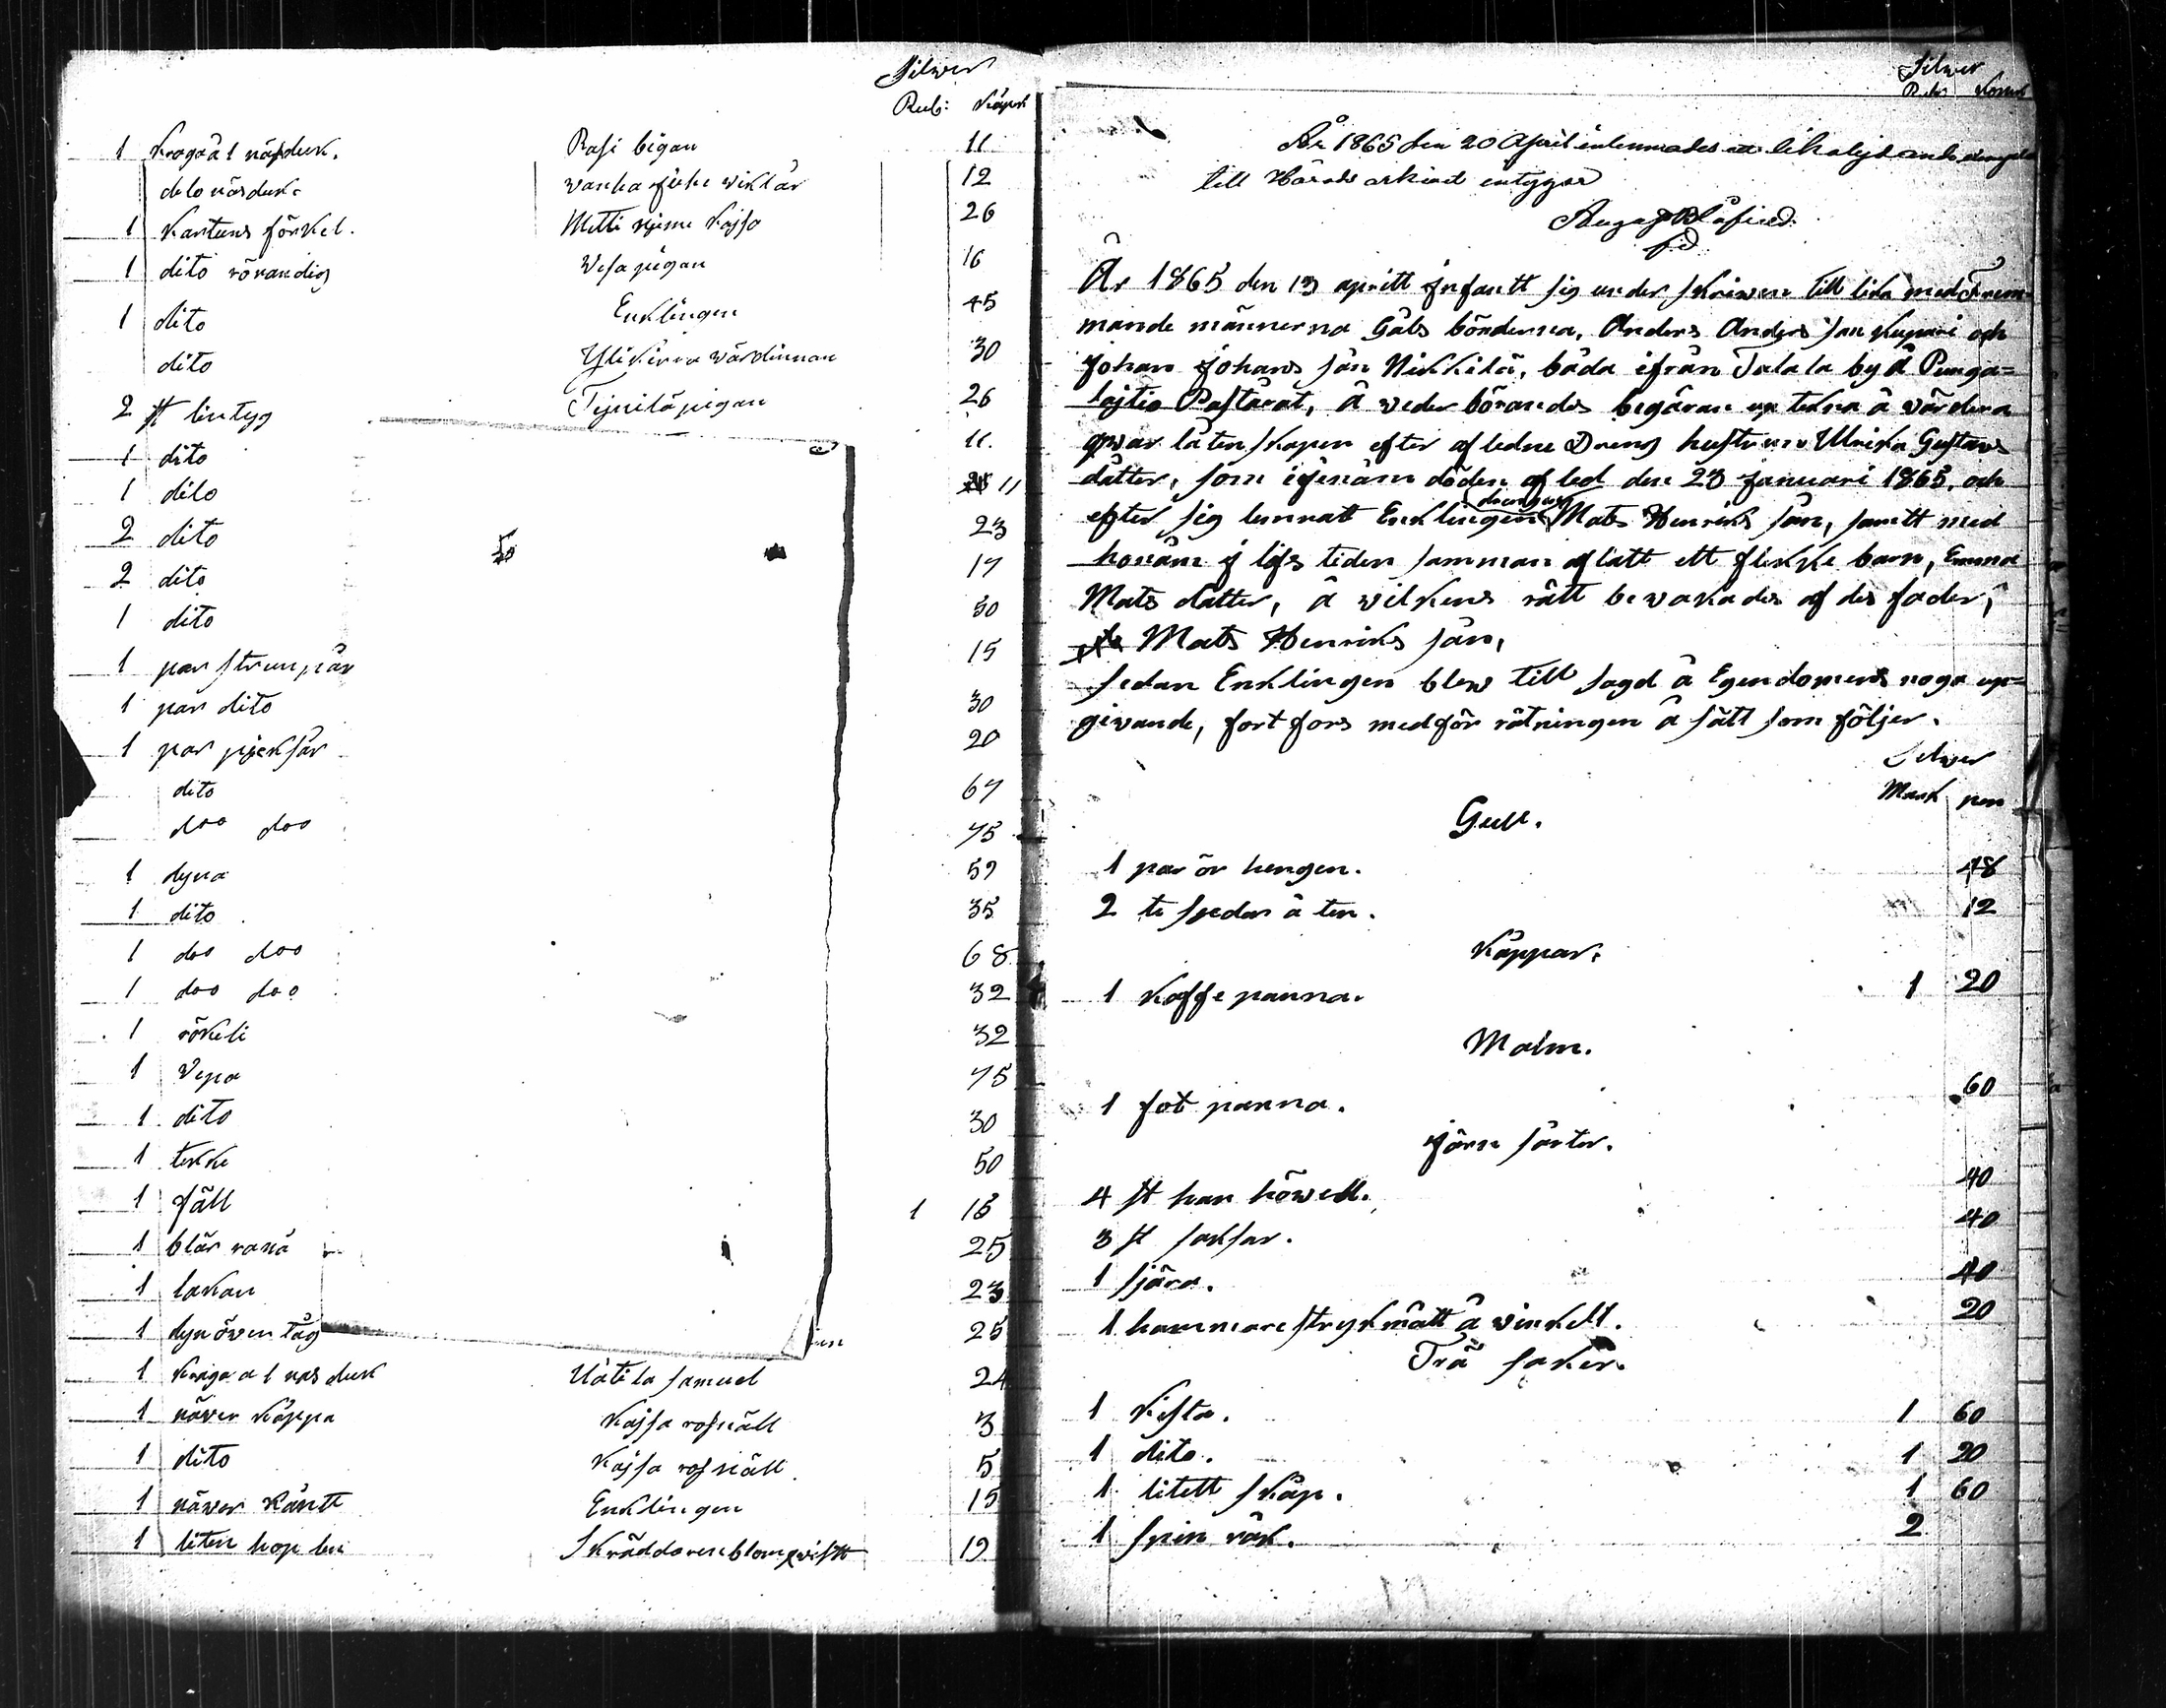 Silwer
Rub: Kåpek
1 Kragåst näsduk. Rasi bigan 11
dito näsduk. wanha wiktär 12
1 Kartuns förkel. Metti Kajsa 26
1 dito rövandig Vesa pigan 16
1 dito Enklingen 45
dito Ylikirra wärdinnan 30
2 st lintyg Tijnilä pigan 26
1 dito 11.
1 dito 11
2 dito 23
2 dito 17
1 dito 50
1 par strumpår 15
1 par dito 30
1 par pjeksår 20
dito 67
doo doo 75
1 dyna 59
1 dito 35
1 doo doo 68
1 doo doo 32
1 rökeli 32
1 Vepa 75
1 dito 30
1 tekke 50
1 fäll 1 15
1 blår 25
1 lakan 23
1 dyn öwer tåg 25
1 nasduk Uåtila samuel 24
1 näwer käppa Kajsa rosnäll 3
1 dito Kajsa rosnäll 5
1 näwer käntt Enklingen 15
1 liten hop lin Skräddaren blomqwistt 19
Silwer
År 1865 den 20 April inlemnades
till Härads arkivet intygar
August
År 1865 den 13 aprill infantt sig under skriwen till lika med Frem-
mande männerna Gåls bönderna, Anders Anders son Kupari och
Johan Johans sån Nikkilä, båda ifrån Talala by å Punga=
lajtio Pastårat, å weder börandes begäran an tekna å wärdera
qwar låtenskapen efter afledne Dreng hustrun Ulrika Gustavs
dåtter, som igenåm döden afled den 23 Januari 1865, och
efter sig lemnatt Enklingen drengen Mats Henriks sån, samtt med
honåm i lifs tiden samman aflatt ett flekke barn, Emma
Mats dåtter, å wilkens rätt bewakades af des fader,
Mats Henriks sån,
sedan Enklingen blew till sagd å Egendomens noga up=
giwande, fortfors med för rätningen å sätt som följer.
Silwer
Mark pen
Gull.
1 par ör hengen. 48
2 te skedar å ten. 12
Kåppar.
1 Kaffe panna. 1 20
Malm.
1 fot panna. 60
järn sårter.
4 st han höwell. 40
3 st saksar. 40
1 sjära. 40
1 hammare strykmått å winkell. 20
Trä saker.
1 Kista. 1 60
1 dito. 1 20
1 litett skåp. 1 60
1 spin råk. 2